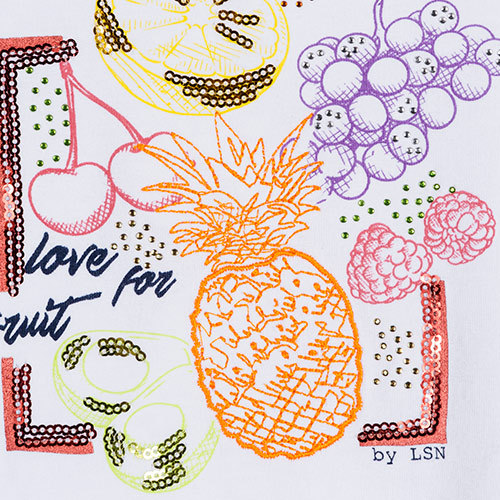 love for
fruit
by LSN